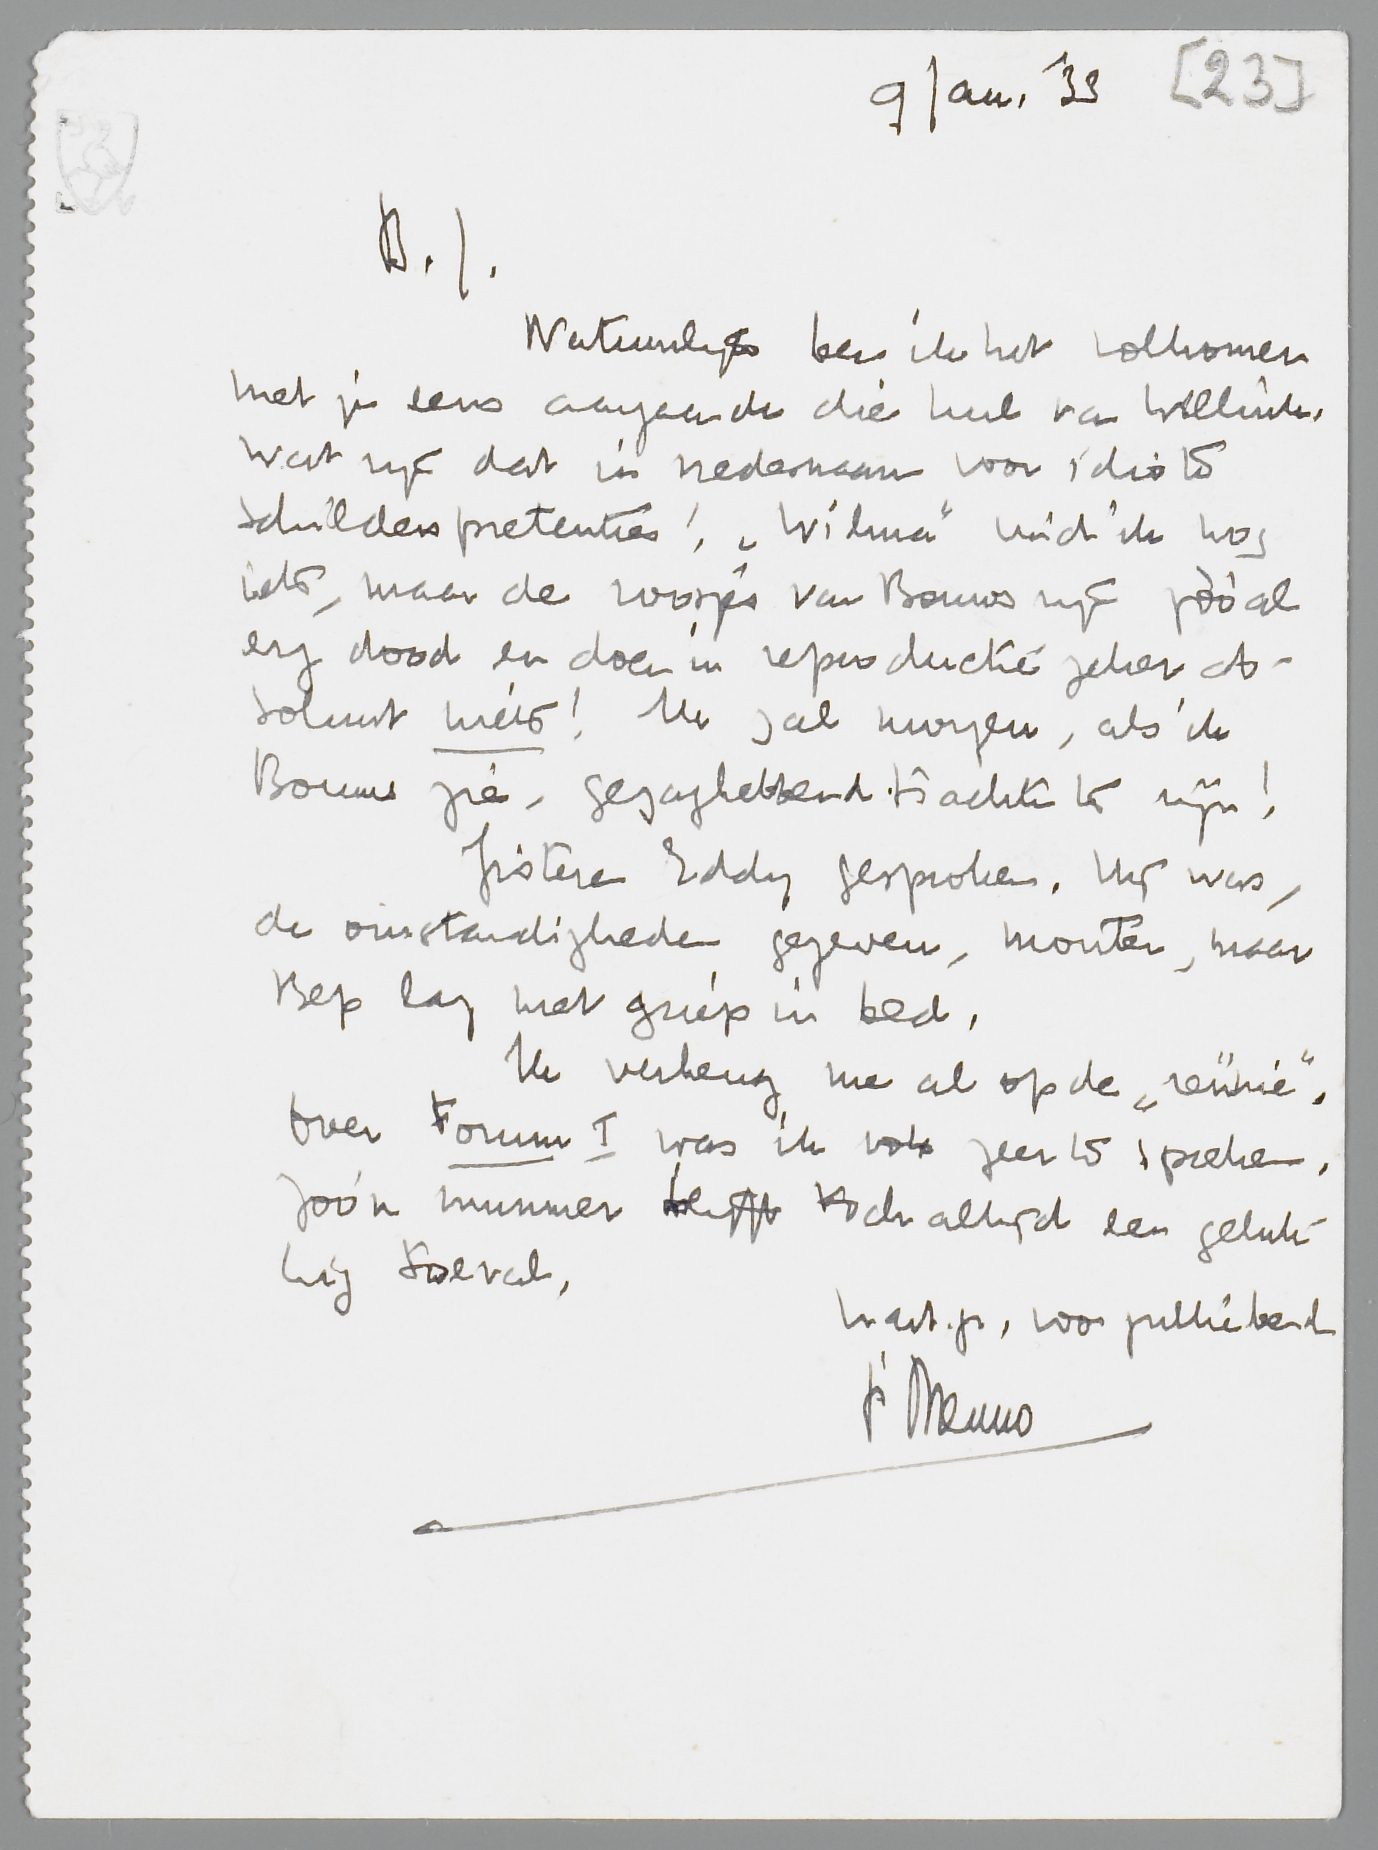 9 Jan. '33 [23]
B. J.
Natuurlijk ben ik het volkomen
met je eens aangaande die kul van Willink.
Wat zijn dat in vredesnaam voor idiote
schilderspretenties! „Wilma" vind ik nog
iets, maar de roosjes van Bouws zijn zóó al
erg dood en doen in reproductie zeker ab-
soluut niets! Ik zal morgen, als ik
Bouws zie, gezaghebbend trachten te zijn!
Gisteren Eddy gesproken. Hij was,
de omstandigheden gegeven, monter, maar
Bep lag met griep in bed.
Ik verheug me al op de „reünie".
Over Forum I was ik ook zeer te spreken.
Zoo'n nummer blijft toch altijd een geluk-
kig toeval.
hart. gr., voor jullie beiden
je Menno